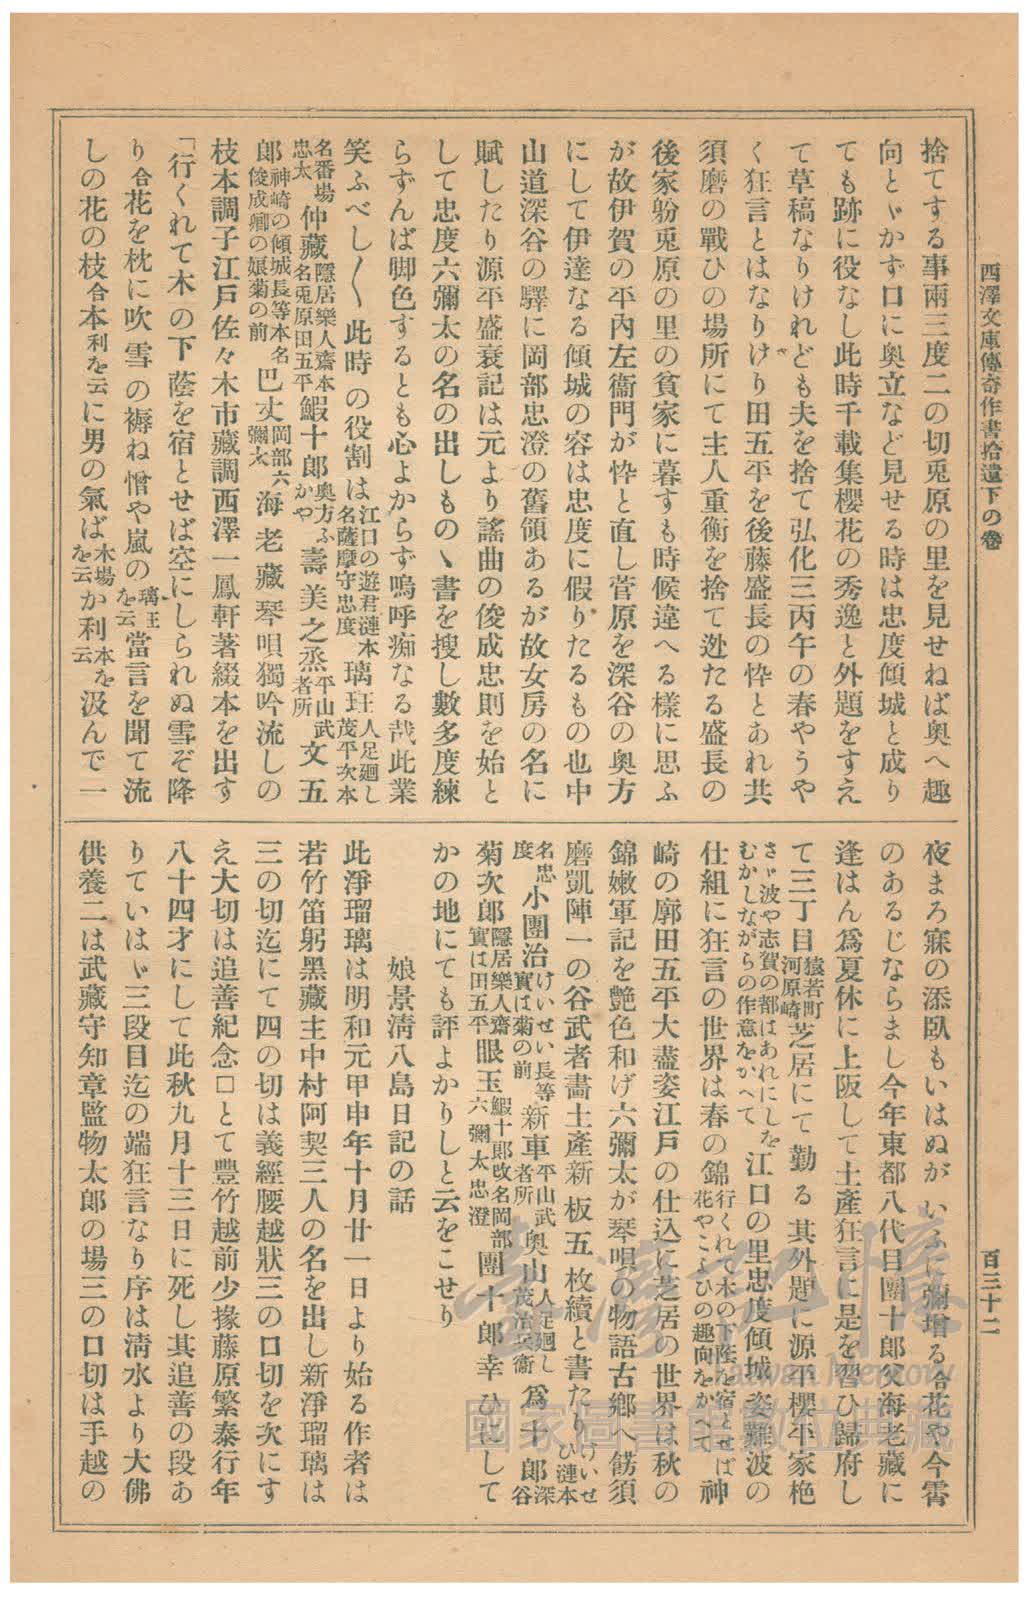 西澤文庫傳奇作書拾遺下の卷
百三十二
捨てする事兩三度二の切兎原の里を見せねば奥へ趣
向とゞかず口に奥立など見せる時は忠度傾城と成り
ても跡に役なし此時千載集櫻花の秀逸と外題をすえ
て草稿なりけれども夫を捨て弘化三丙午の春やうや
く狂言とはなりけり田五平を後藤盛長の忰とあれ共
須磨の戰ひの場所にて主人重衡を捨て迯たる盛長の
後家躮兎原の里の貧家に暮すも時候違へる樣に思ふ
が故伊賀の平內左衞門が忰と直し菅原を深谷の奥方
にして伊達なる傾城の容は忠度に假りたるもの也中
山道深谷の驛に岡部忠澄の舊領あるが故女房の名に
賦したり源平盛衰記は元より謠曲の俊成忠則を始と
して忠度六彌太の名の出しものゝ書を搜し數多度練
らずんば脚色するとも心よからず嗚呼痴なる哉此業
笑ふべし〱此時の役割は江口の遊君漣本名薩摩守忠度璃珏人足廻し茂平次本
名番場忠太仲藏隱居樂人齋本名兎原田五平鰕十郎奥方ふかや壽美之烝平山武者所文五
郎神崎の傾城長等本名俊成卿の娘菊の前巴丈岡部六彌太海老藏琴唄獨吟流しの
枝本調子江戸佐々木市藏調西澤一鳳軒著綴本を出す
「行くれて木の下蔭を宿とせば空にしられぬ雪ぞ降
り合花を枕に吹雪の褥ね憎や嵐の璃王を云當言を聞て流
しの花の枝合本利を云に男の氣ば木場を云か利本を云汲んで一
夜まろ寐の添臥もいはぬがいふに彌增る合花や今霄
のあるじならまし今年東都八代目團十郎父海老藏に
逢はん爲夏休に上阪して土產狂言に是を習ひ歸府し
て三丁目猿若町河原崎芝居にて勤る其外題に源平櫻平家桅
さゞ波や志賀の都はあれにしをむかしながらの作意をかへて江口の里忠度傾城姿難波の
仕組に狂言の世界は春の錦行くれて木の下蔭を宿とせば花やこよひの趣向をかへて神
崎の廓田五平大盡姿江戸の仕込に芝居の世界は秋の
錦嫩軍記を艶色和げ六彌太が琴唄の物語古鄕へ餝須
磨凱陣一の谷武者畵土產新板五枚續と書たりけいせひ漣本
名忠度小團治けいせい長等實は菊の前新車平山武者所奥山人足廻し茂治兵衞爲十郎深谷
菊次郎隱居樂人齋實は田五平眼玉鰕十郎改名岡部六彌太忠澄團十郎幸ひにして
かの地にても評よかりしと云をこせり
娘景淸八島日記の話
此淨瑠璃は明和元甲申年十月廿一日より始る作者は
若竹笛躬黑藏主中村阿契三人の名を出し新淨瑠璃は
三の切迄にて四の切は義經腰越狀三の口切を次にす
え大切は追善紀念□とて豊竹越前少掾藤原繁泰行年
八十四才にして此秋九月十三日に死し其追善の段あ
りていはゞ三段目迄の端狂言なり序は淸水より大佛
供養二は武藏守知章監物太郎の場三の口切は手越の
臺灣記憶
Taiwan Memory
國家圖書館數位典藏